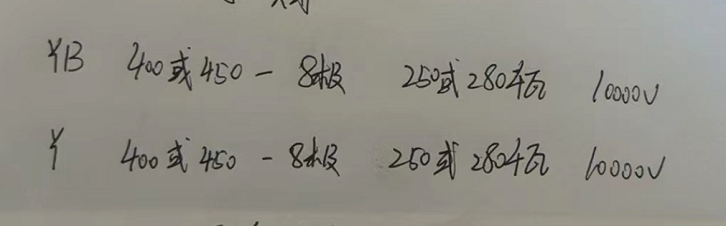 YB 400或450-8极 250或280千瓦 10000V
Y 400或450-8极 250或280千瓦 10000V